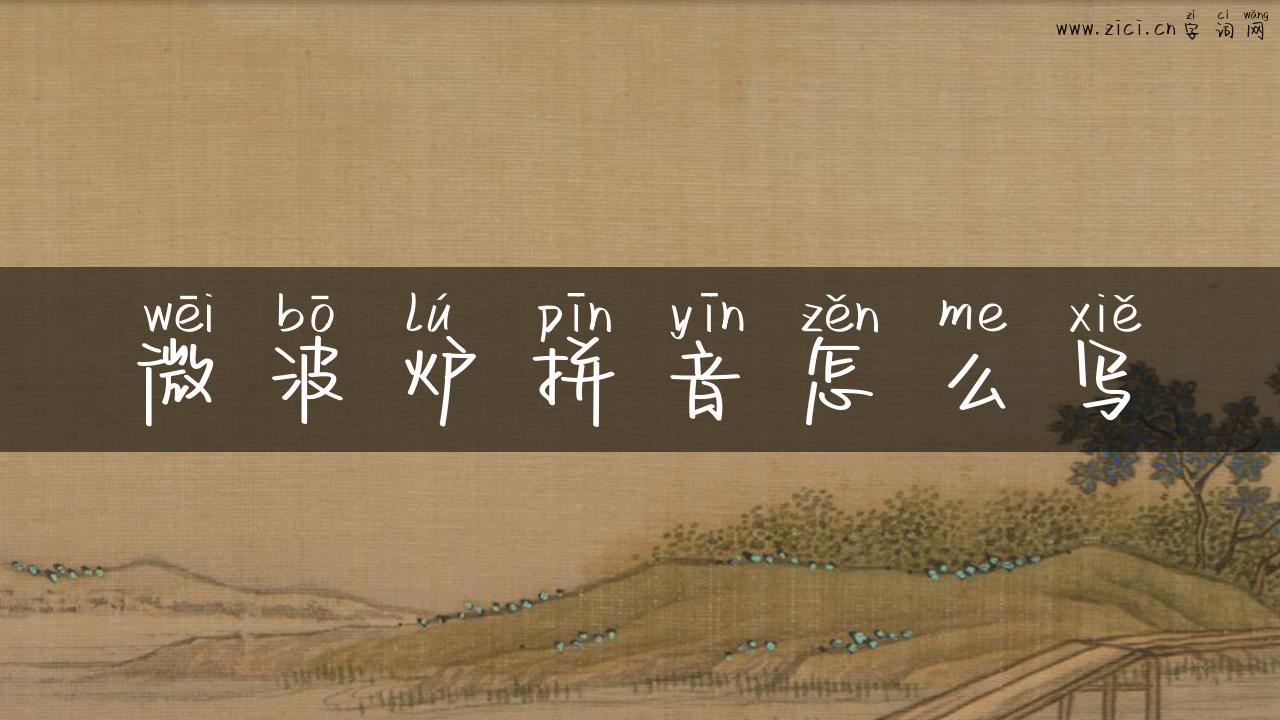 zì cí wǎng
www.zici.cn字词网
wēi bō lú pīn yīn zěn me xiě
微波炉拼音怎么写